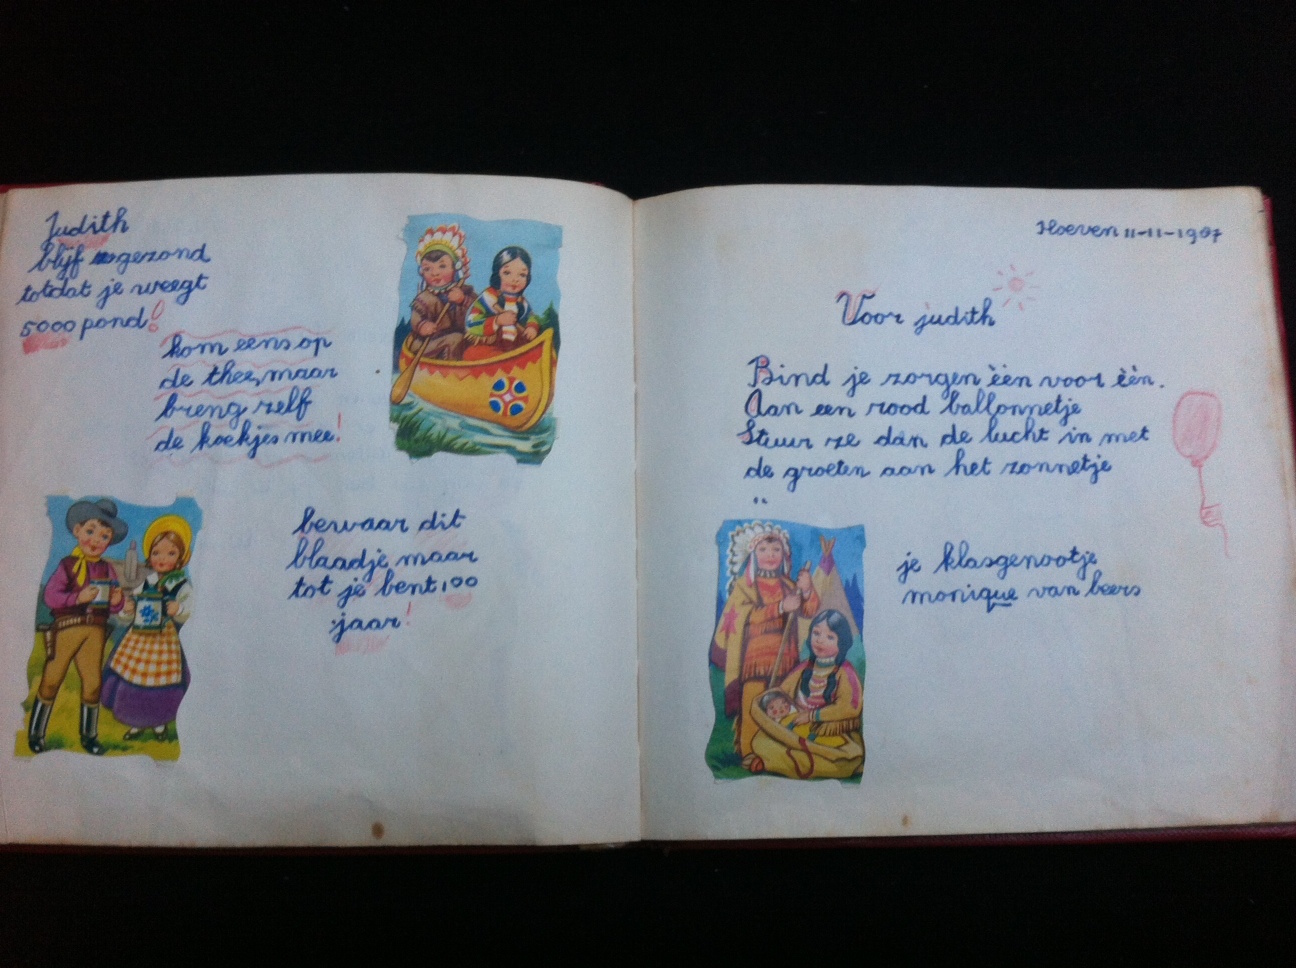 Judith
blijf gezond
totdat je weegt
5000 pond!
kom eens op
de thee, maar
breng zelf
de koekjes mee!
bewaar dit
blaadje maar
tot je bent 100
jaar!
Hoeven 11-11-19
Voor judith
Bind je zorgen èèn voor èèn.
Aan een rood ballonnetje
Stuur ze dan de lucht in met
de groeten aan het zonnetje
je klasgenootje
monique van beers